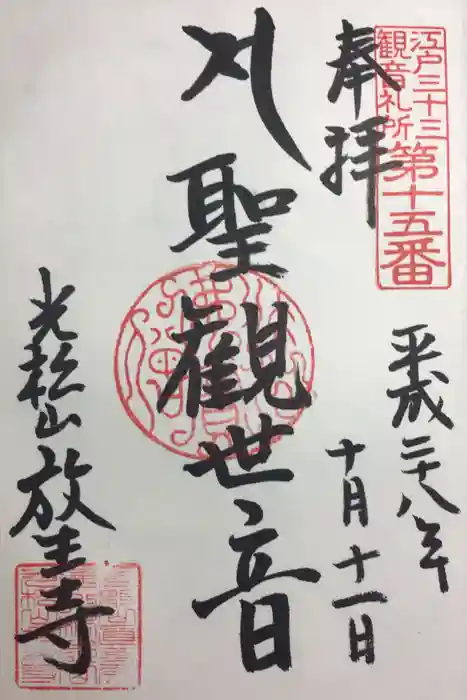 江戸三十三
観音札所
第十五番
奉拝
平成二十八年
十月十一日
聖観世音
光松山
放生寺